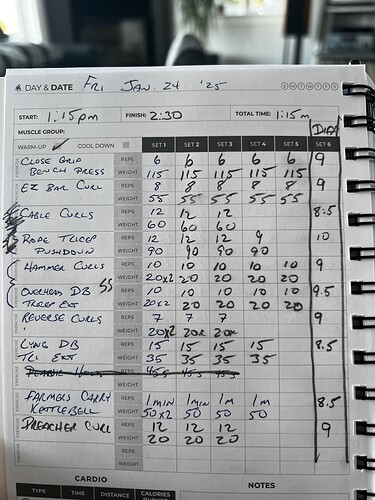 DAY & DATE Fri Jan. 24 '25 S M T W T F S
START: 1:15pm FINISH: 2:30 TOTAL TIME: 1:15m
MUSCLE GROUP: Diff
WARM-UP ✓ COOL DOWN SET 1 SET 2 SET 3 SET 4 SET 5 SET 6
CLOSE GRIP REPS 6 6 6 6 6 9
BENCH PRESS WEIGHT 115 115 115 115 115
EZ BAR CURL REPS 8 8 8 8 8 9
WEIGHT 55 55 55 55 55
CABLE CURLS REPS 12 12 12 8.5
WEIGHT 60 60 60
ROPE TRICEP REPS 12 12 12 9 10
PUSHDOWN WEIGHT 90 90 90 90
HAMMER CURLS REPS 10 10 10 10 10 9
WEIGHT 20x2 20 20 20 20
SS
OVERHEAD DB REPS 10 10 10 10 10 9.5
TRICEP EXT WEIGHT 20x2 20 20 20 20
REVERSE CURLS REPS 7 7 7 9
WEIGHT 20x2 20x 20x
LYNG DB REPS 15 15 15 15 8.5
TRI EXT WEIGHT 35 35 35 35
REPS 45s 45s 45s
WEIGHT
FARMERS CARRY REPS 1min 1min 1m 1m 8.5
KETTLEBELL WEIGHT 50x2 50 50 50
PREACHER CURL REPS 12 12 12 9
WEIGHT 20 20 20
REPS
WEIGHT
CARDIO NOTES
TYPE TIME DISTANCE CALORIES